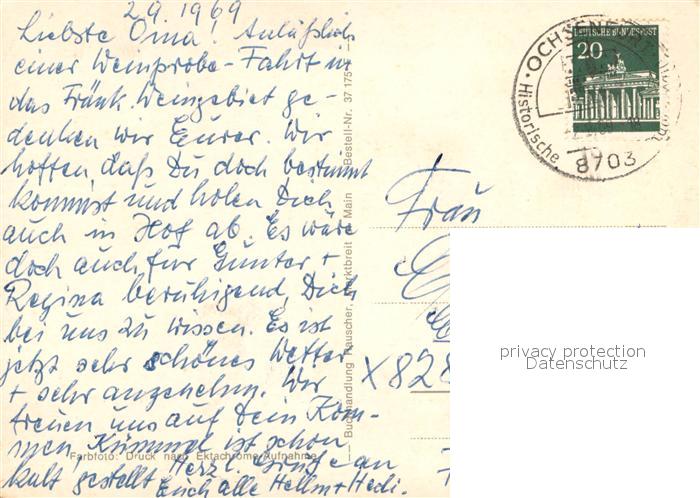 2.9.1969
Liebste Oma! Anläßlich
einer Weinprobe-Fahrt in
das Fränk. Weingebiet ge-
denken wir Eurer. Wir
hoffen, daß Du doch bestimmt
kommst und holen Dich
auch in Hof ab. Es wäre
doch auch für Günter +
Regina beruhigend, Dich
bei uns zu wissen. Es ist
jetzt sehr schönes Wetter
+ sehr angenehm. Wir
freuen uns auf Dein Kom-
men, Kümmel ist schon
kalt gestellt! Herzl. Grüße an
Euch alle Hellm + Hedi.
Farbfoto: Druck nach Ektachrome-Aufnahme
Buchhandlung Rauscher, Marktbreit am Main Bestell-Nr. 37 175
DEUTSCHE BUNDESPOST
20
OCHSENFURT
Historische
8703
Frau
X828
privacy protection
Datenschutz